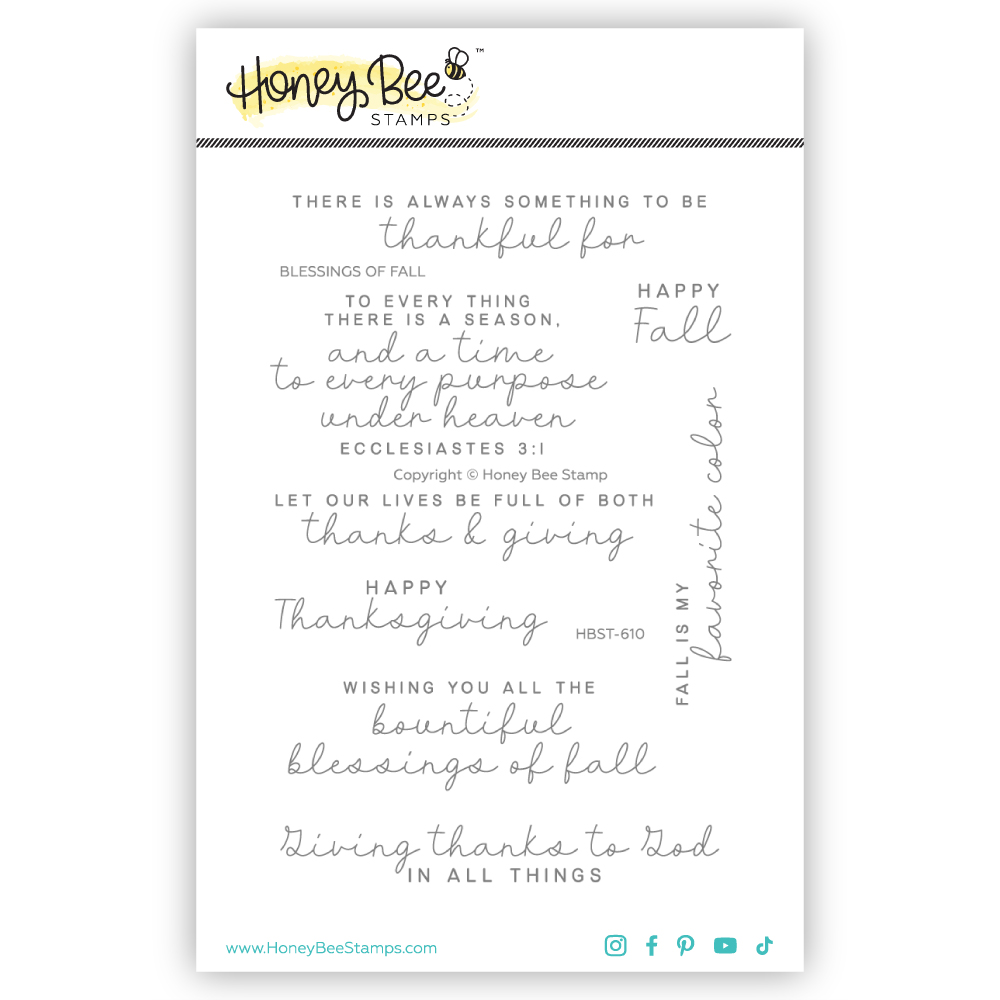 Honey Bee ™
STAMPS
THERE IS ALWAYS SOMETHING TO BE
thankful for
BLESSINGS OF FALL
HAPPY
Fall
TO EVERY THING
THERE IS A SEASON,
and a time
to every purpose
under heaven
ECCLESIASTES 3:1
Copyright © Honey Bee Stamp
LET OUR LIVES BE FULL OF BOTH
thanks & giving
FALL IS MY
favorite color
HAPPY
Thanksgiving
HBST-610
WISHING YOU ALL THE
bountiful
blessings of fall
Giving thanks to God
IN ALL THINGS
www.HoneyBeeStamps.com